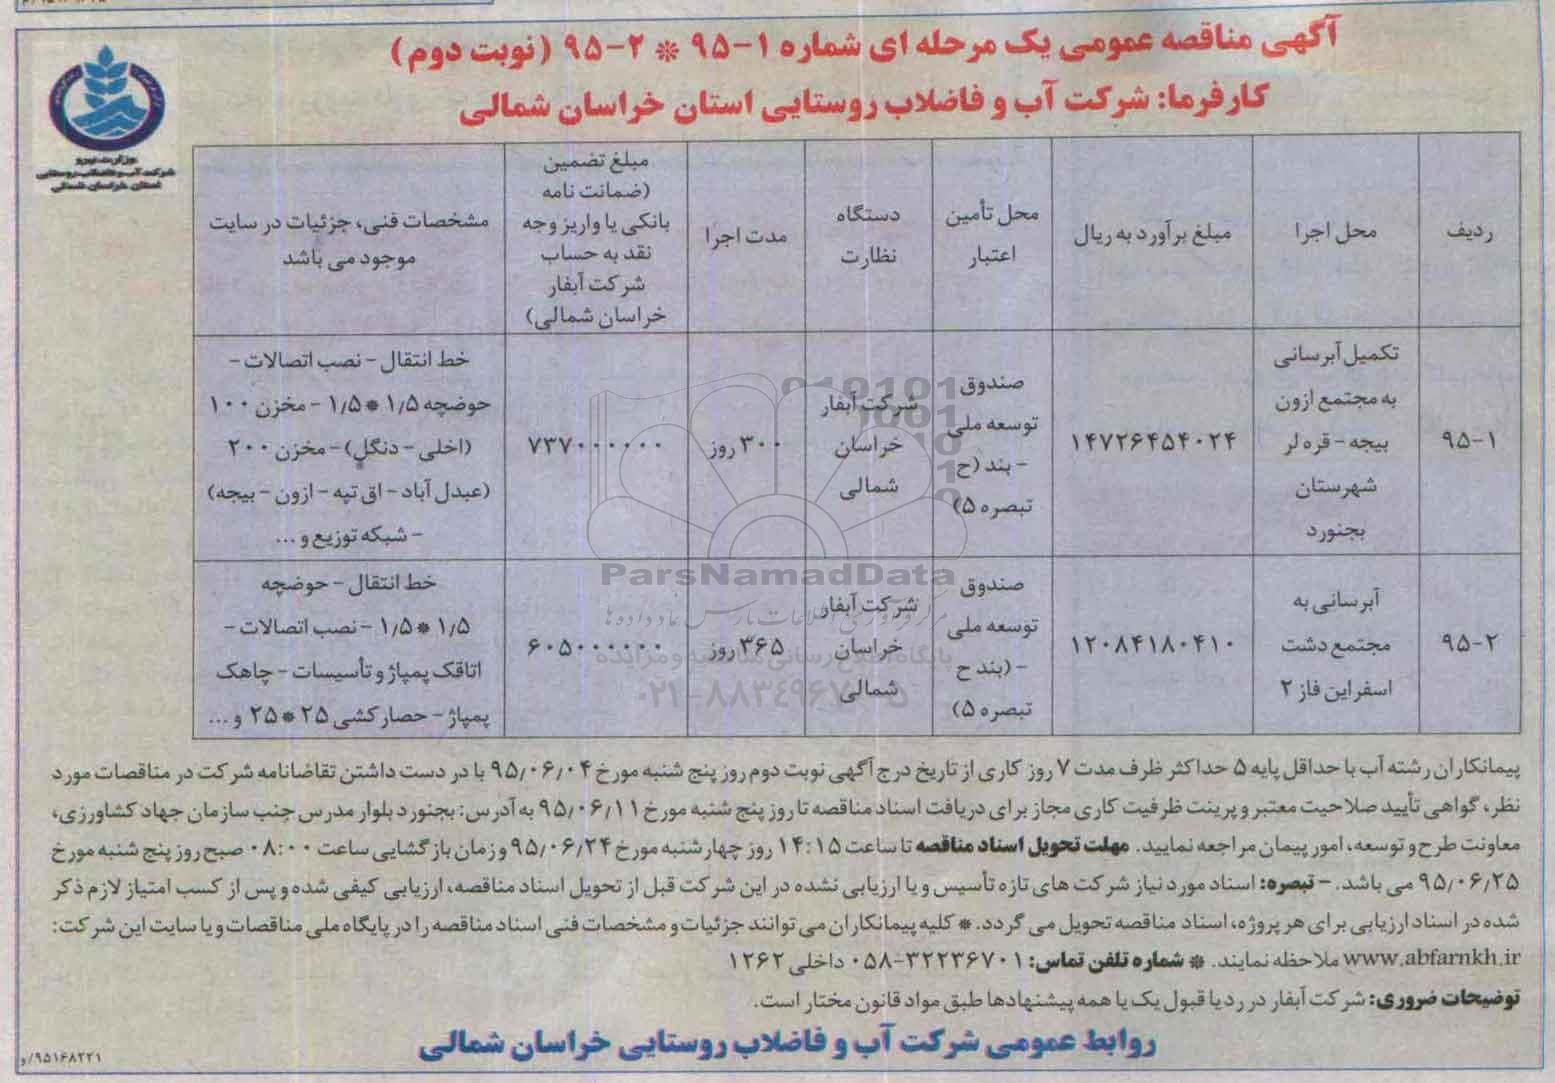 آگهی مناقصه عمومی یک مرحله ای شماره ۱-۹۵ * ۲-۹۵ (نوبت دوم)
کارفرما: شرکت آب و فاضلاب روستایی استان خراسان شمالی
وزارت نیرو
شرکت آب و فاضلاب روستایی
استان خراسان شمالی
ردیف
محل اجرا
مبلغ برآورد به ریال
محل تأمین
اعتبار
دستگاه
نظارت
مدت اجرا
مبلغ تضمین
(ضمانت نامه
بانکی یا واریز وجه
نقد به حساب
شرکت آبفار
خراسان شمالی)
مشخصات فنی، جزئیات در سایت
موجود می باشد
۹۵-۱
تکمیل آبرسانی
به مجتمع ازون
بیجه - قره لر
شهرستان
بجنورد
۱۴۷۲۶۴۵۴۰۲۴
صندوق
توسعه ملی
- بند (ح
تبصره ۵)
شرکت آبفار
خراسان
شمالی
۳۰۰ روز
۷۳۷۰۰۰۰۰۰
خط انتقال - نصب اتصالات -
حوضچه ۱/۵ * ۱/۵ - مخزن ۱۰۰
(اخلی - دنگل) - مخزن ۲۰۰
(عبدل آباد - اق تپه - ازون - بیجه)
- شبکه توزیع و ...
۹۵-۲
آبرسانی به
مجتمع دشت
اسفراین فاز ۲
۱۲۰۸۴۱۸۰۴۱۰
صندوق
توسعه ملی
- (بند ح
تبصره ۵)
شرکت آبفار
خراسان
شمالی
۳۶۵ روز
۶۰۵۰۰۰۰۰۰
خط انتقال - حوضچه
۱/۵ * ۱/۵ - نصب اتصالات -
اتاقک پمپاژ و تأسیسات - چاهک
پمپاژ - حصارکشی ۲۵ * ۲۵ و ...
پیمانکاران رشته آب با حداقل پایه ۵ حداکثر ظرف مدت ۷ روز کاری از تاریخ درج آگهی نوبت دوم روز پنج شنبه مورخ ۹۵/۰۶/۰۴ با در دست داشتن تقاضانامه شرکت در مناقصات مورد
نظر، گواهی تأیید صلاحیت معتبر و پرینت ظرفیت کاری مجاز برای دریافت اسناد مناقصه تا روز پنج شنبه مورخ ۹۵/۰۶/۱۱ به آدرس: بجنورد بلوار مدرس جنب سازمان جهاد کشاورزی،
معاونت طرح و توسعه، امور پیمان مراجعه نمایید. مهلت تحویل اسناد مناقصه تا ساعت ۱۴:۱۵ روز چهارشنبه مورخ ۹۵/۰۶/۲۴ و زمان بازگشایی ساعت ۰۸:۰۰ صبح روز پنج شنبه مورخ
۹۵/۰۶/۲۵ می باشد. - تبصره: اسناد مورد نیاز شرکت های تازه تأسیس و یا ارزیابی نشده در این شرکت قبل از تحویل اسناد مناقصه، ارزیابی کیفی شده و پس از کسب امتیاز لازم ذکر
شده در اسناد ارزیابی برای هر پروژه، اسناد مناقصه تحویل می گردد. * کلیه پیمانکاران می توانند جزئیات و مشخصات فنی اسناد مناقصه را در پایگاه ملی مناقصات و یا سایت این شرکت:
www.abfarnkh.ir ملاحظه نمایند. * شماره تلفن تماس: ۰۵۸-۳۲۲۳۶۷۰۱ داخلی ۱۲۶۲
توضیحات ضروری: شرکت آبفار در رد یا قبول یک یا همه پیشنهادها طبق مواد قانون مختار است.
روابط عمومی شرکت آب و فاضلاب روستایی خراسان شمالی
۹۵۱۶۸۲۲۱/و
ParsNamadData
پایگاه اطلاع رسانی مناقصه و مزایده